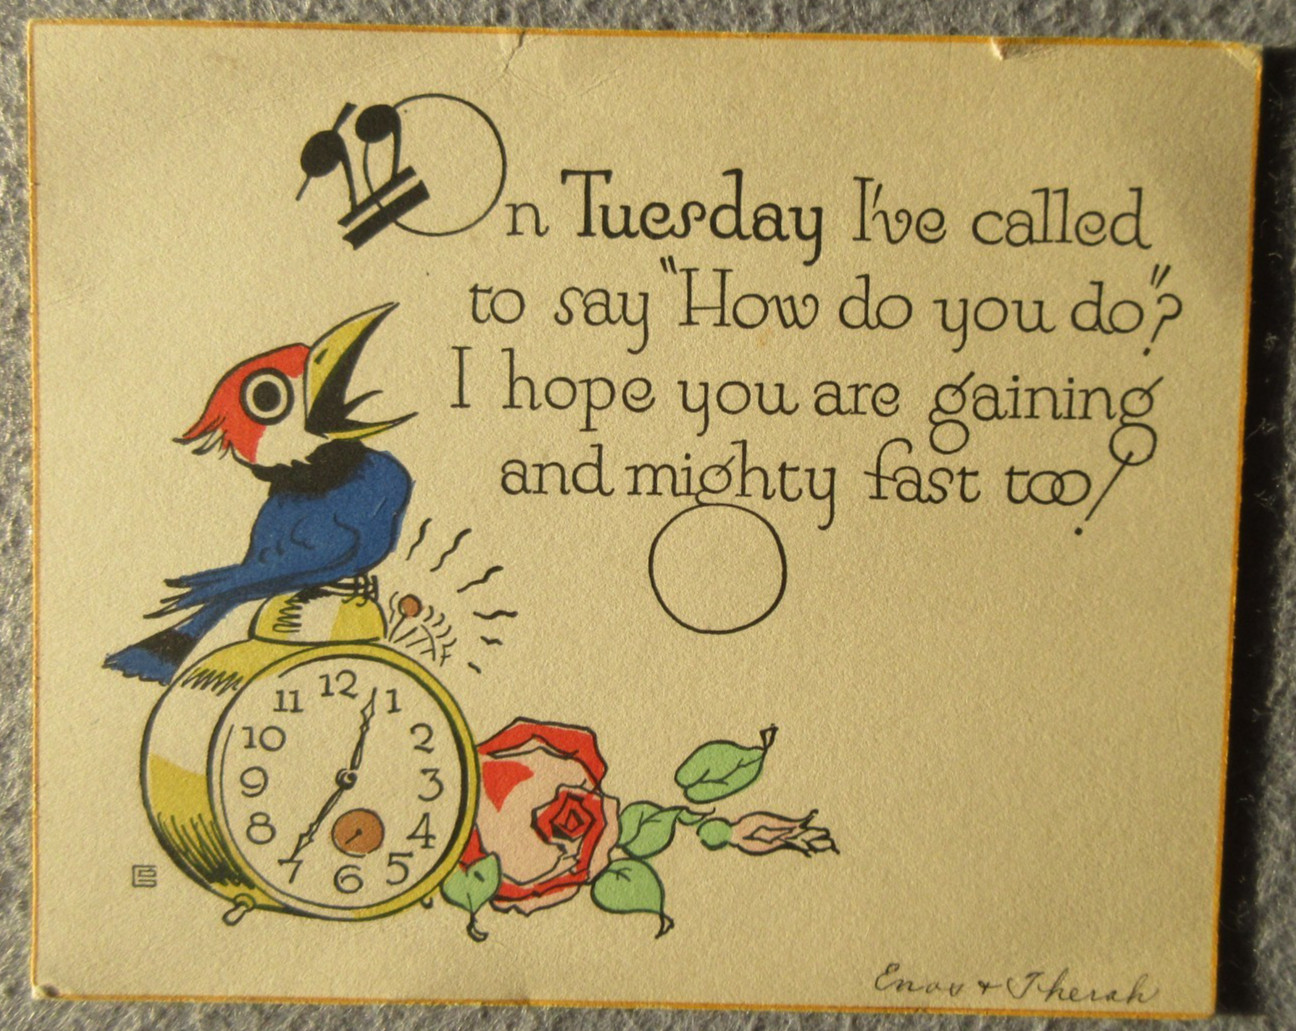 On Tuesday I've called
to say "How do you do"?
I hope you are gaining
and mighty fast too!
12
11
1
10
2
9
3
8
4
7
6
5
Enos + Therah